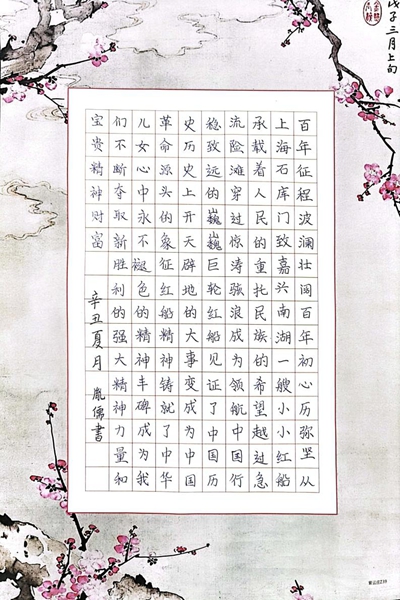 戊子三月上旬
百年征程波澜壮阔百年初心历弥坚从
上海石库门致嘉兴南湖一艘小小红船
承载着人民的重托民族的希望越过急
流险滩穿过惊涛骇浪成为领航中国行
稳致远的巍巍巨轮红船见证了中国历
史历史上开天辟地的大事变成为中国
革命源头的象征红船精神铸就了中华
儿女心中永不褪色的精神丰碑成为我
们不断夺取新胜利的强大精神力量和
宝贵精神财富
辛丑夏月 胤儒書